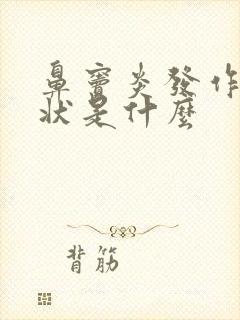 鼻竇炎發作
狀是什麼
背筋